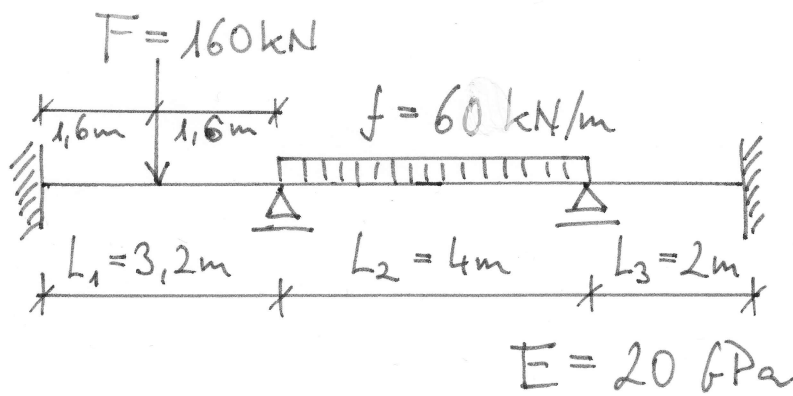 F = 160 kN
1,6m 1,6m
f = 60 kN/m
L₁ = 3,2m L₂ = 4m L₃ = 2m
E = 20 GPa